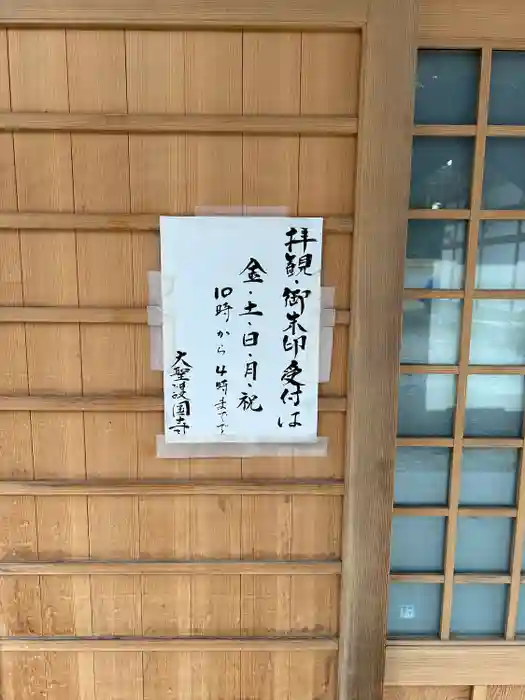 拝観・御朱印受付は
金・土・日・月・祝
10時から4時まで
大聖護国寺